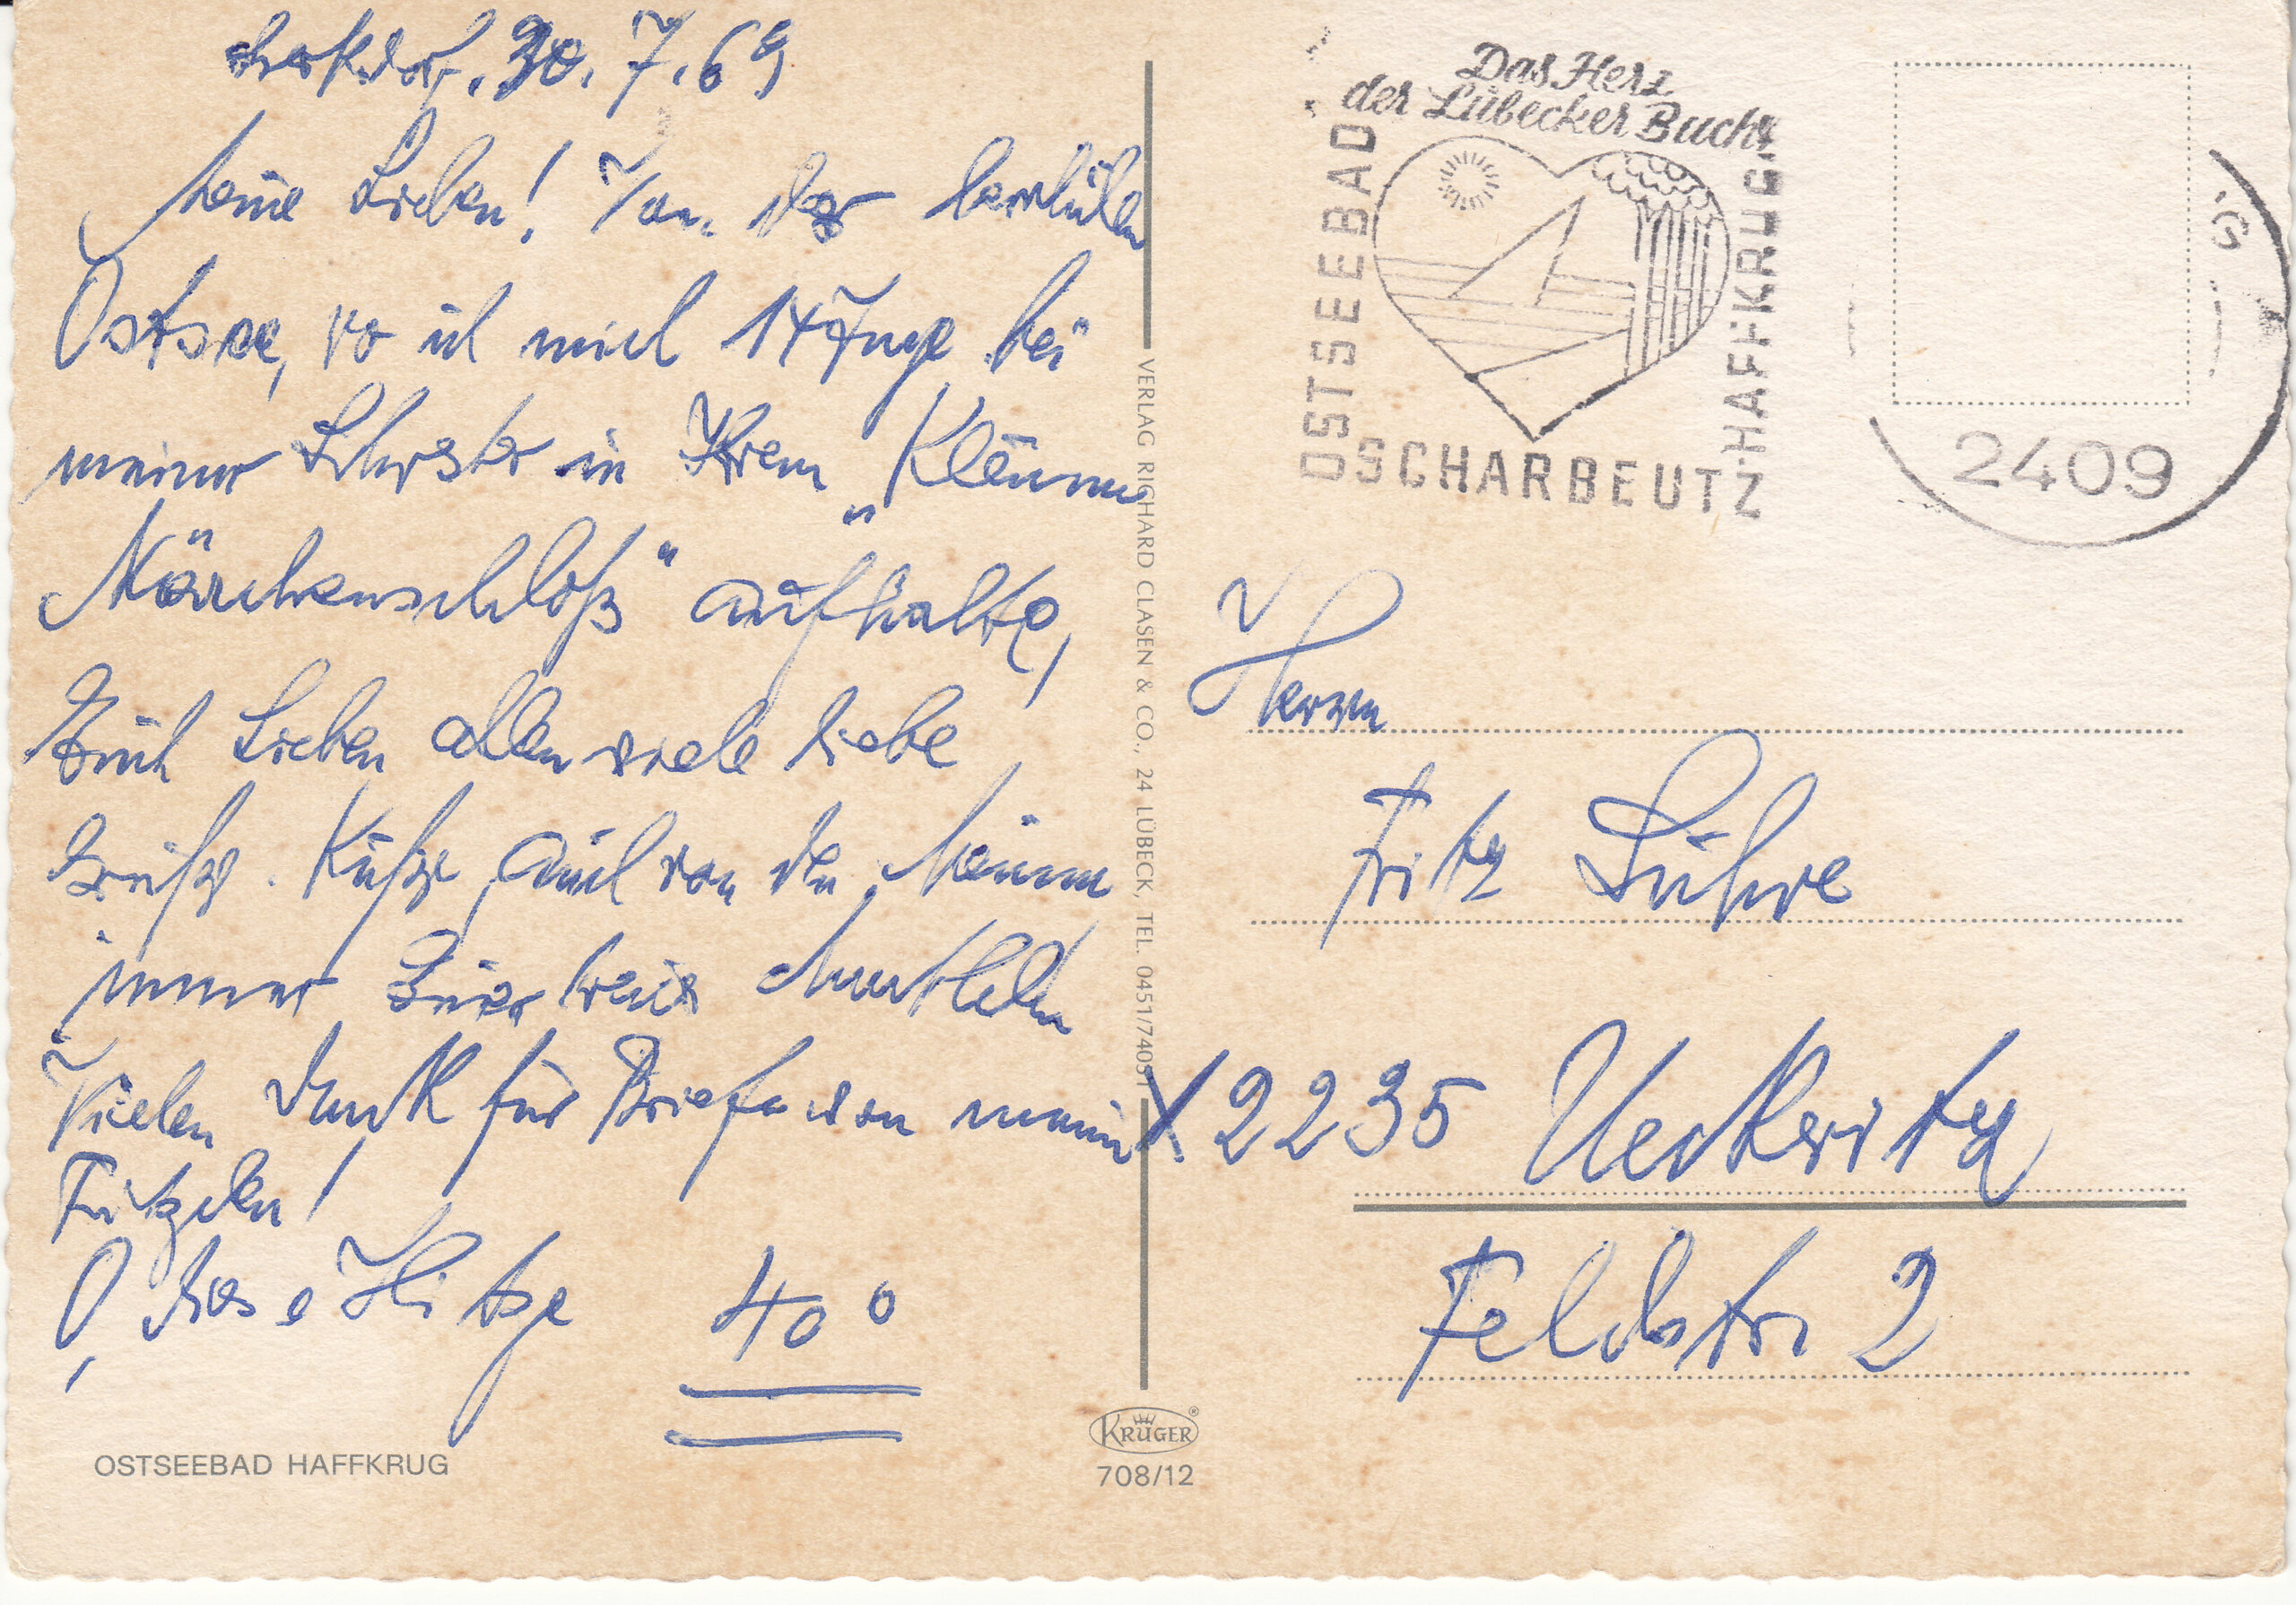 30.7.69
Meine Lieben! Von der herrlichen
Ostsee, wo ich mich 14 Tage bei
meiner Schwester in Ihrem „Kleinen
Märchenschloß" aufhalte,
Euch Lieben allen viele liebe
Grüße. Küße, auch von den Meinen
immer Eure treue
Vielen Dank für Briefe von meinem
Fritzchen!
O, diese Hitze 40°
OSTSEEBAD HAFFKRUG
VERLAG RICHARD CLASEN & CO., 24 LÜBECK, TEL. 0451/74051
KRÜGER
708/12
Das Herz
der Lübecker Bucht
OSTSEEBAD
SCHARBEUTZ
HAFFKRUG
2409
Herrn
Fritz Lühre
X 2235 Ueckeritz
Feldstr. 2